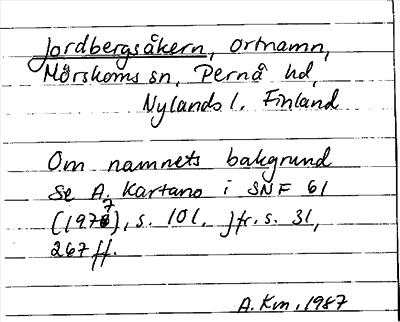 Jordbergsåkern, ortnamn,
Mörskoms sn, Pernå hd,
Nylands l. Finland
Om namnets bakgrund
se A. Kartano i SNF 61
(1977), s. 101. Jfr. s. 31,
267 ff.
A.Km, 1987